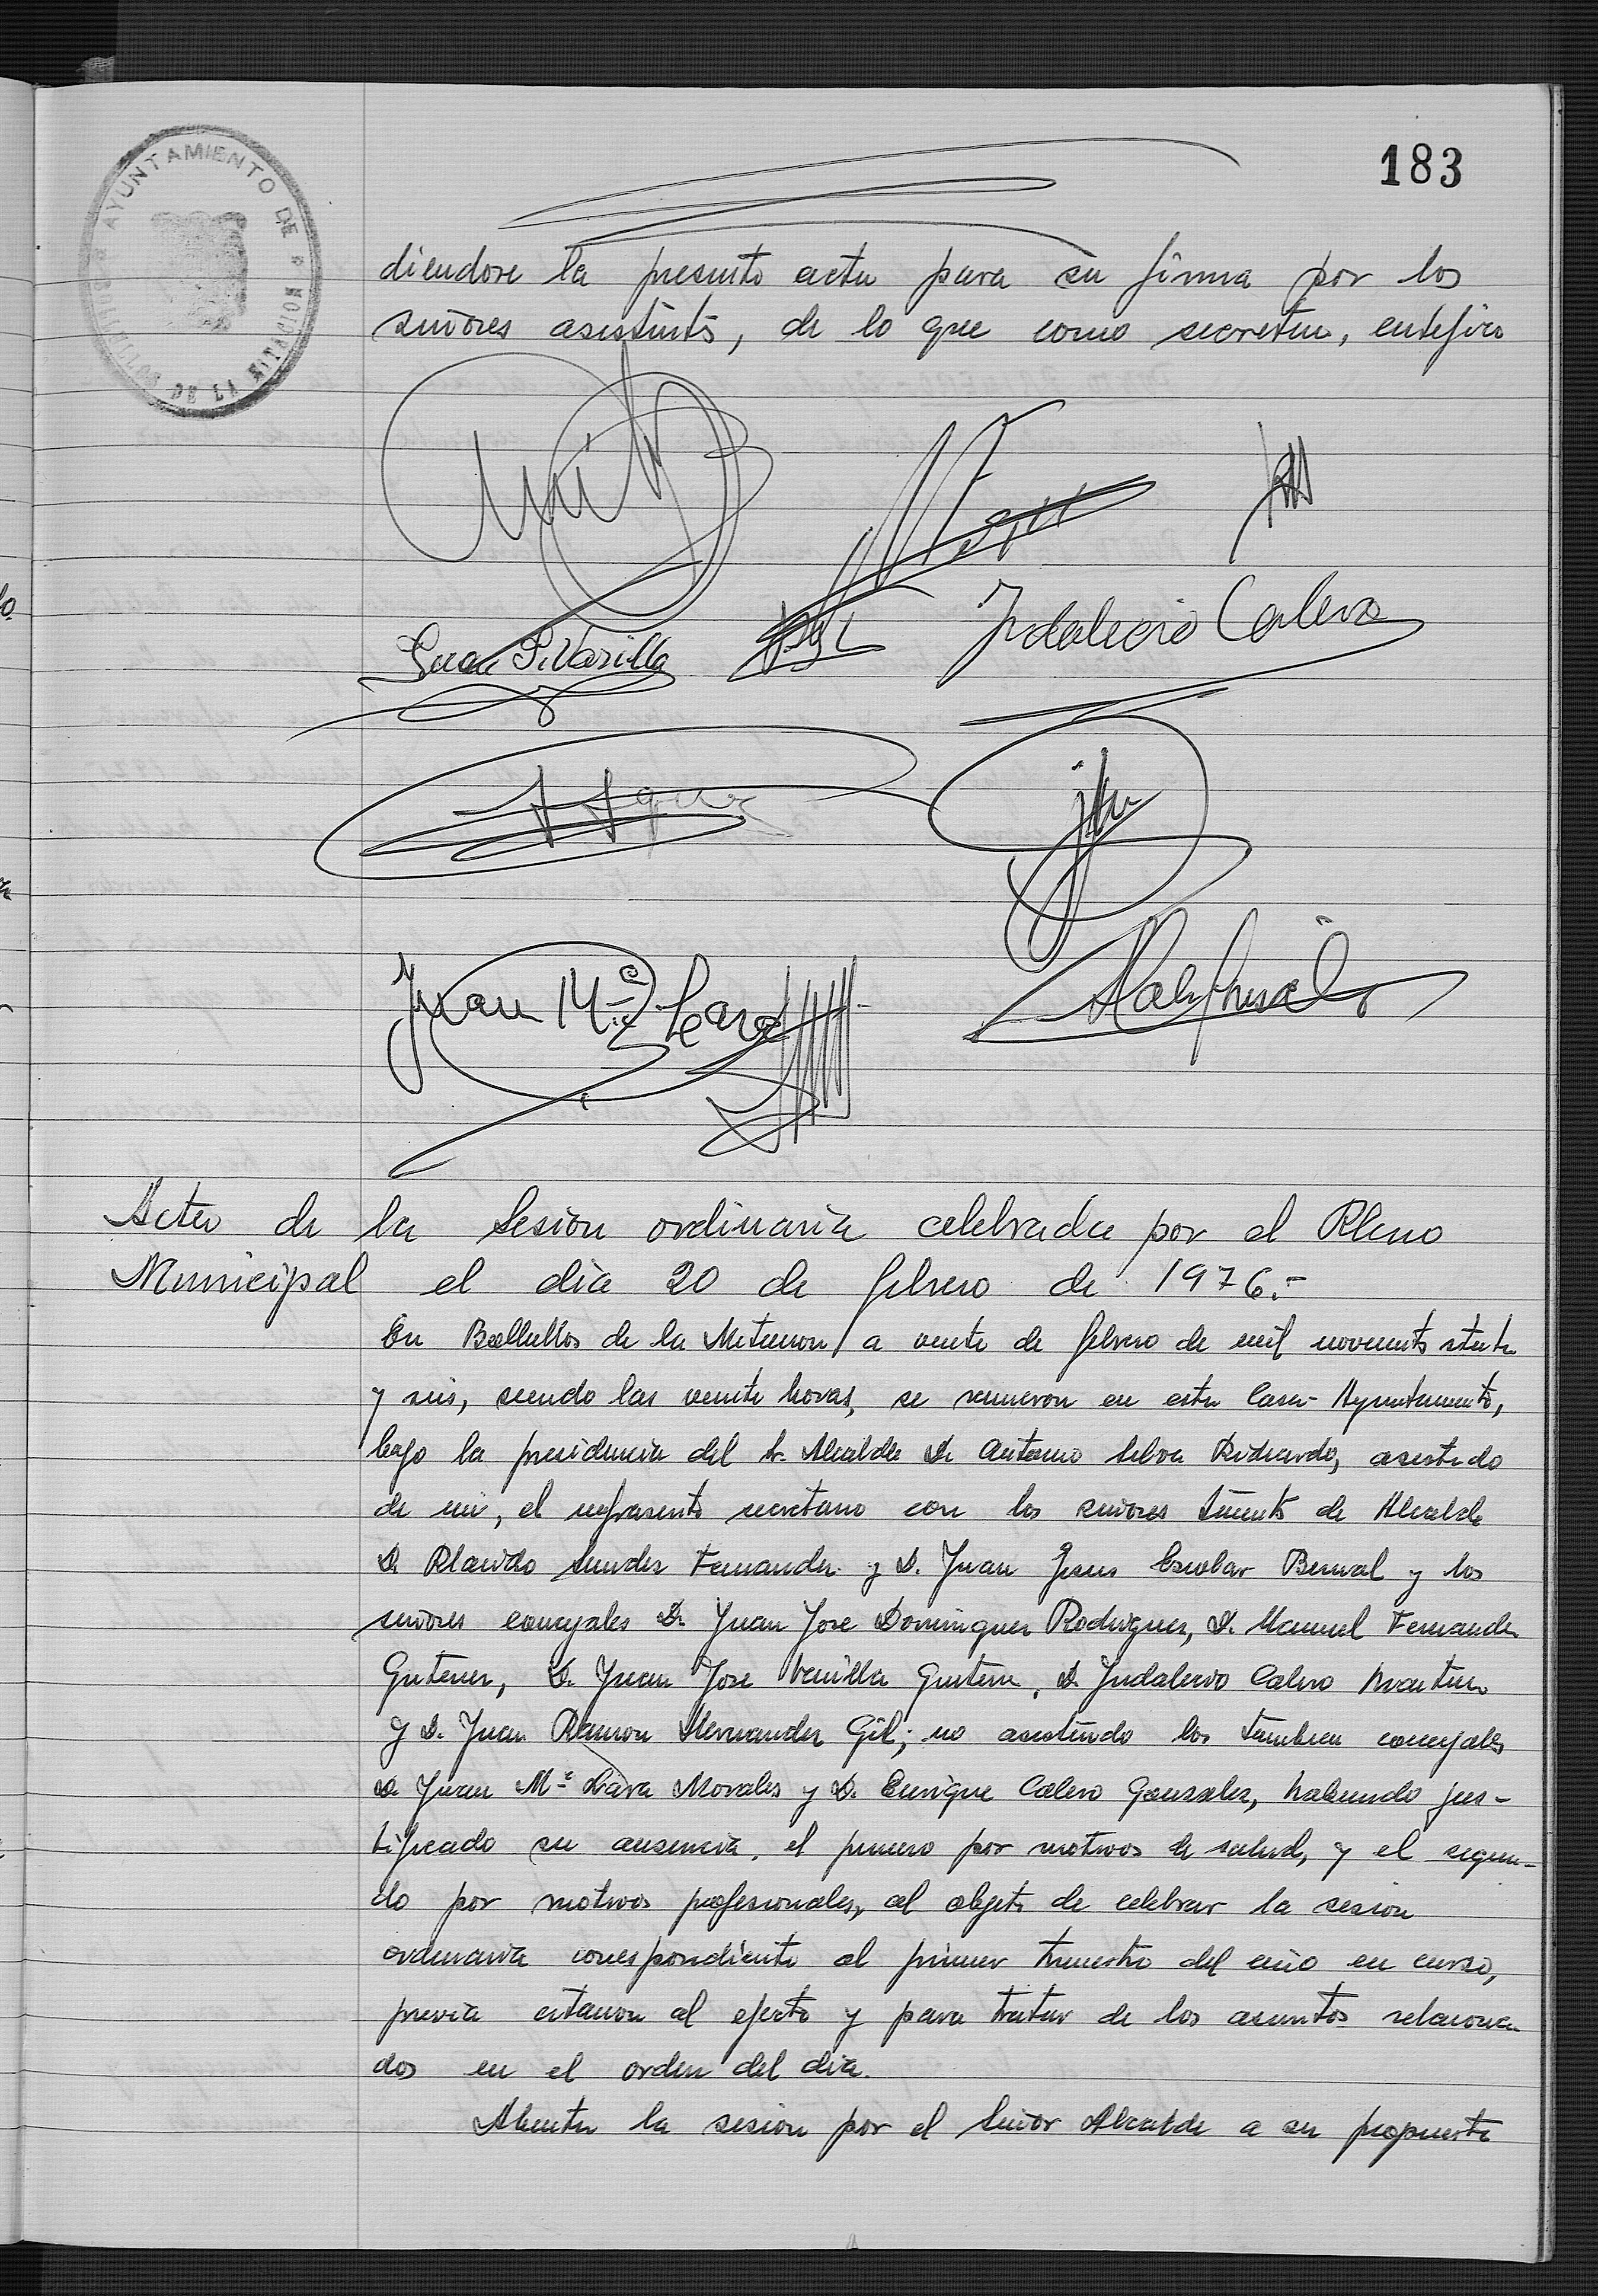 183
AYUNTAMIENTO DE BOLLULLOS DE LA MITACION
diendose la presente acta para su firma por los
señores asistentes, de lo que como secretario, certifico
Juan J. Varilla
Indalecio Calero
Juan Mª Lara
Acta de la Sesion ordinaria celebrada por el Pleno
Municipal el dia 20 de febrero de 1976.-
En Bollullos de la Mitacion a veinte de febrero de mil novecientos setenta
y seis, siendo las veinte horas, se reunieron en esta Casa-Ayuntamiento,
bajo la presidencia del Sr. Alcalde D. Antonio Selva, asistido
de mi, el infrascrito secretario con los señores Tenientes de Alcalde
D. Placido Mendez Fernandez y D. Juan Jesus Escobar Bernal y los
señores concejales D. Juan Jose Dominguez Rodriguez, D. Manuel Fernandez
Gutierrez, D. Juan Jose Varilla Gutierrez, D. Indalecio Calero Martinez
y D. Juan Ramon Hernandez Gil; no asistiendo los tambien concejales
D. Juan Mª Lara Morales y D. Enrique Calero Gonzalez, habiendo jus-
tificado su ausencia, el primero por motivos de salud, y el segun-
do por motivos profesionales, al objeto de celebrar la sesion
ordinaria correspondiente al primer trimestre del año en curso,
previa citacion al efecto y para tratar de los asuntos relaciona
dos en el orden del dia.
Abierta la sesion por el Señor Alcalde a su propuesta